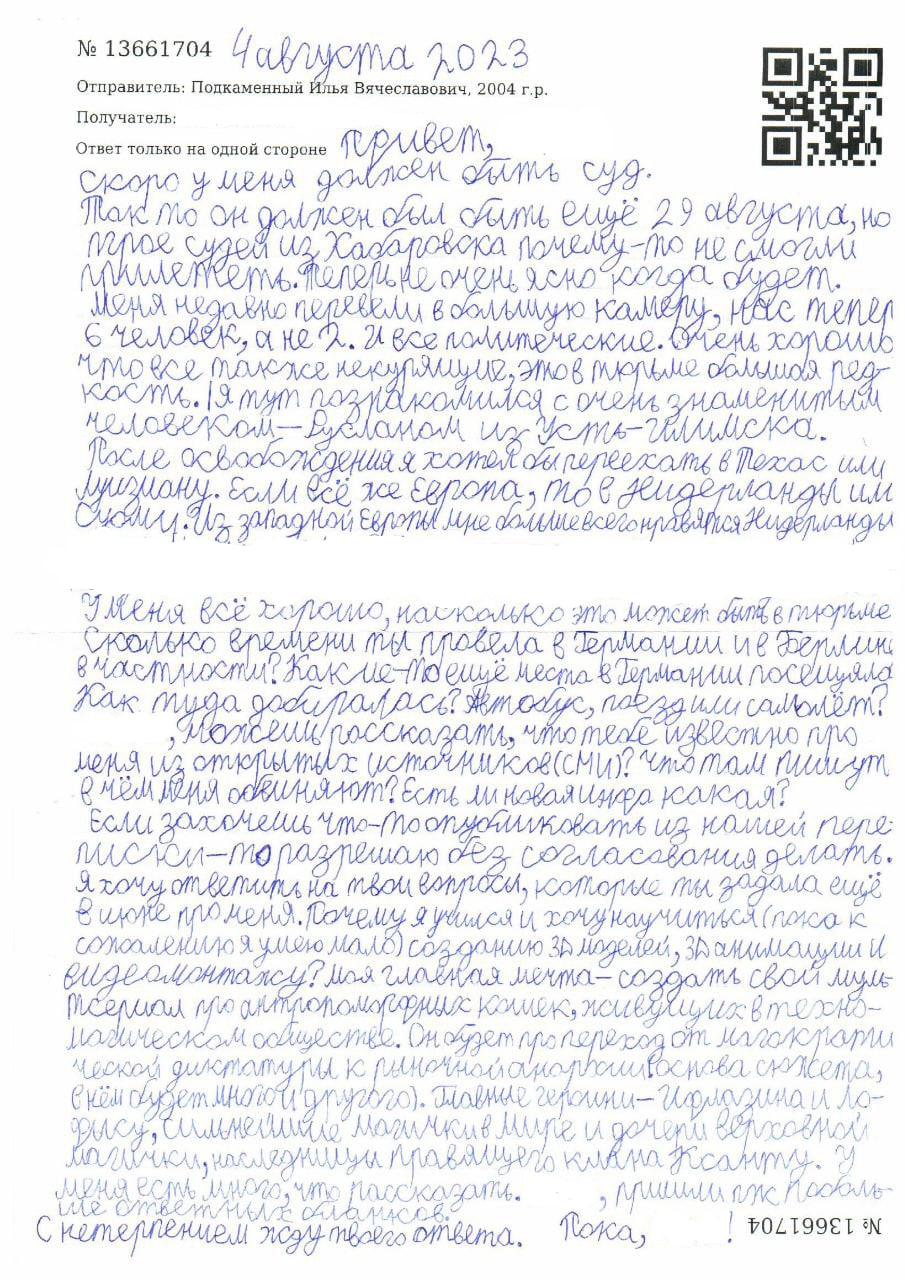 № 13661704 4 августа 2023
Отправитель: Подкаменный Илья Вячеславович, 2004 г.р.
Получатель:
Ответ только на одной стороне Привет,
скоро у меня должен быть суд.
Так то он должен был быть ещё 29 августа, но
трое судей из Хабаровска почему-то не смогли
прилететь. Теперь не очень ясно когда будет.
Меня недавно перевели в большую камеру, нас тепер
6 человек, а не 2. И все политические. Очень хорошо
что все также некурящие, это в тюрьме большая ред-
кость. Я тут познакомился с очень знаменитым
человеком — Русланом из Усть-Илимска.
После освобождения я хотел бы переехать в Техас или
Луизиану. Если всё же Европа, то в Нидерланды или
Из западной Европы мне больше всего нравятся Нидерланды
У меня всё хорошо, насколько это может быть в тюрьме
Сколько времени ты провела в Германии и в Берлине
в частности? Какие-то ещё места в Германии посещяла
Как туда добиралась? Автобус, поезд или самолёт?
, можешь рассказать, что тебе известно про
меня из открытых источников (СМИ)? Что там пишут
в чём меня обвиняют? Есть ли новая инфа какая?
Если захочешь что-то опубликовать из нашей пере-
писки — то разрешаю без согласования делать.
Я хочу ответить на твои вопросы, которые ты задала ещё
в июне про меня. Почему я учился и хочу научиться (пока к
сожалению я умею мало) созданию 3D моделей, 3D анимации и
видеомонтажу? Моя главная мечта — создать свой муль-
тсериал про антропоморфных кошек, живущих в техно-
магическом обществе. Он будет про переход от магократи
ческой диктатуры к рыночной анархии (основа сюжета,
в нём будет много и другого). Главные героини — и Ло-
фису, сильнейшие магички в мире и дочери верховной
магички, наследницы правящего клана Ксанту. У
меня есть много, что рассказать. , пришли пж поболь-
ше ответных бланков.
С нетерпением жду твоего ответа. Пока, !
№ 13661704